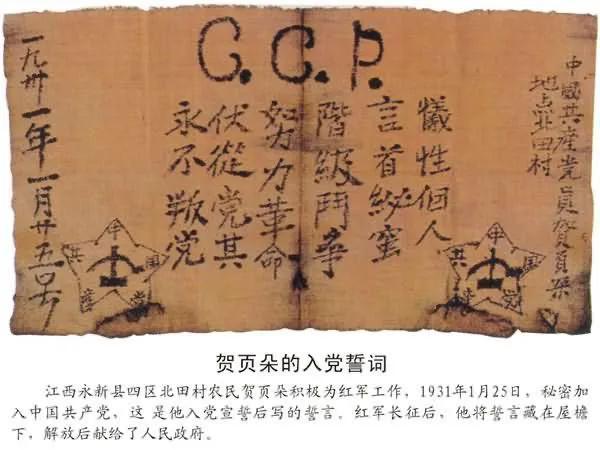 C.C.P.
中國共產党員賀頁朶
地点北田村
犧性個人
言首秘蜜
階級鬥争
努力革命
伏從党其
永不叛党
一九卅一年一月廿五号
中国共產党
中国共產党
贺页朵的入党誓词
江西永新县四区北田村农民贺页朵积极为红军工作，1931年1月25日，秘密加
入中国共产党，这是他入党宣誓后写的誓言。红军长征后，他将誓言藏在屋檐
下，解放后献给了人民政府。